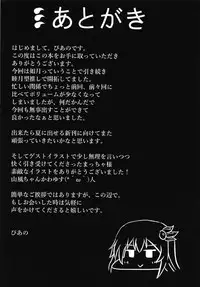 あとがき
はじめまして。ぴあのです。
この度はこの本をお手に取っていただき
ありがとうございます。
今回は如月っていうことで引き続き
睦月型推しで開拓してました。
忙しい関係でちょっと前回、前々回と
比べてボリュームが少なくなって
しまったんですが、何だかんだで
今回も無事出すことができて
良かったなぁと思いました。
出来たら夏に出せる新刊に向けてまた
頑張っていきたいかなと思います。
そしてゲストイラストで少し無理を言いつつ
快く引き受けてくださったまっちゃ様
素敵なイラストをありがとうございました！
山風ちゃんかわゆす(*´ω｀)人
簡単なご挨拶ではありますが、この辺で。
もしお会いした時は気軽に
声をかけてくださると嬉しいです。
ぴあの